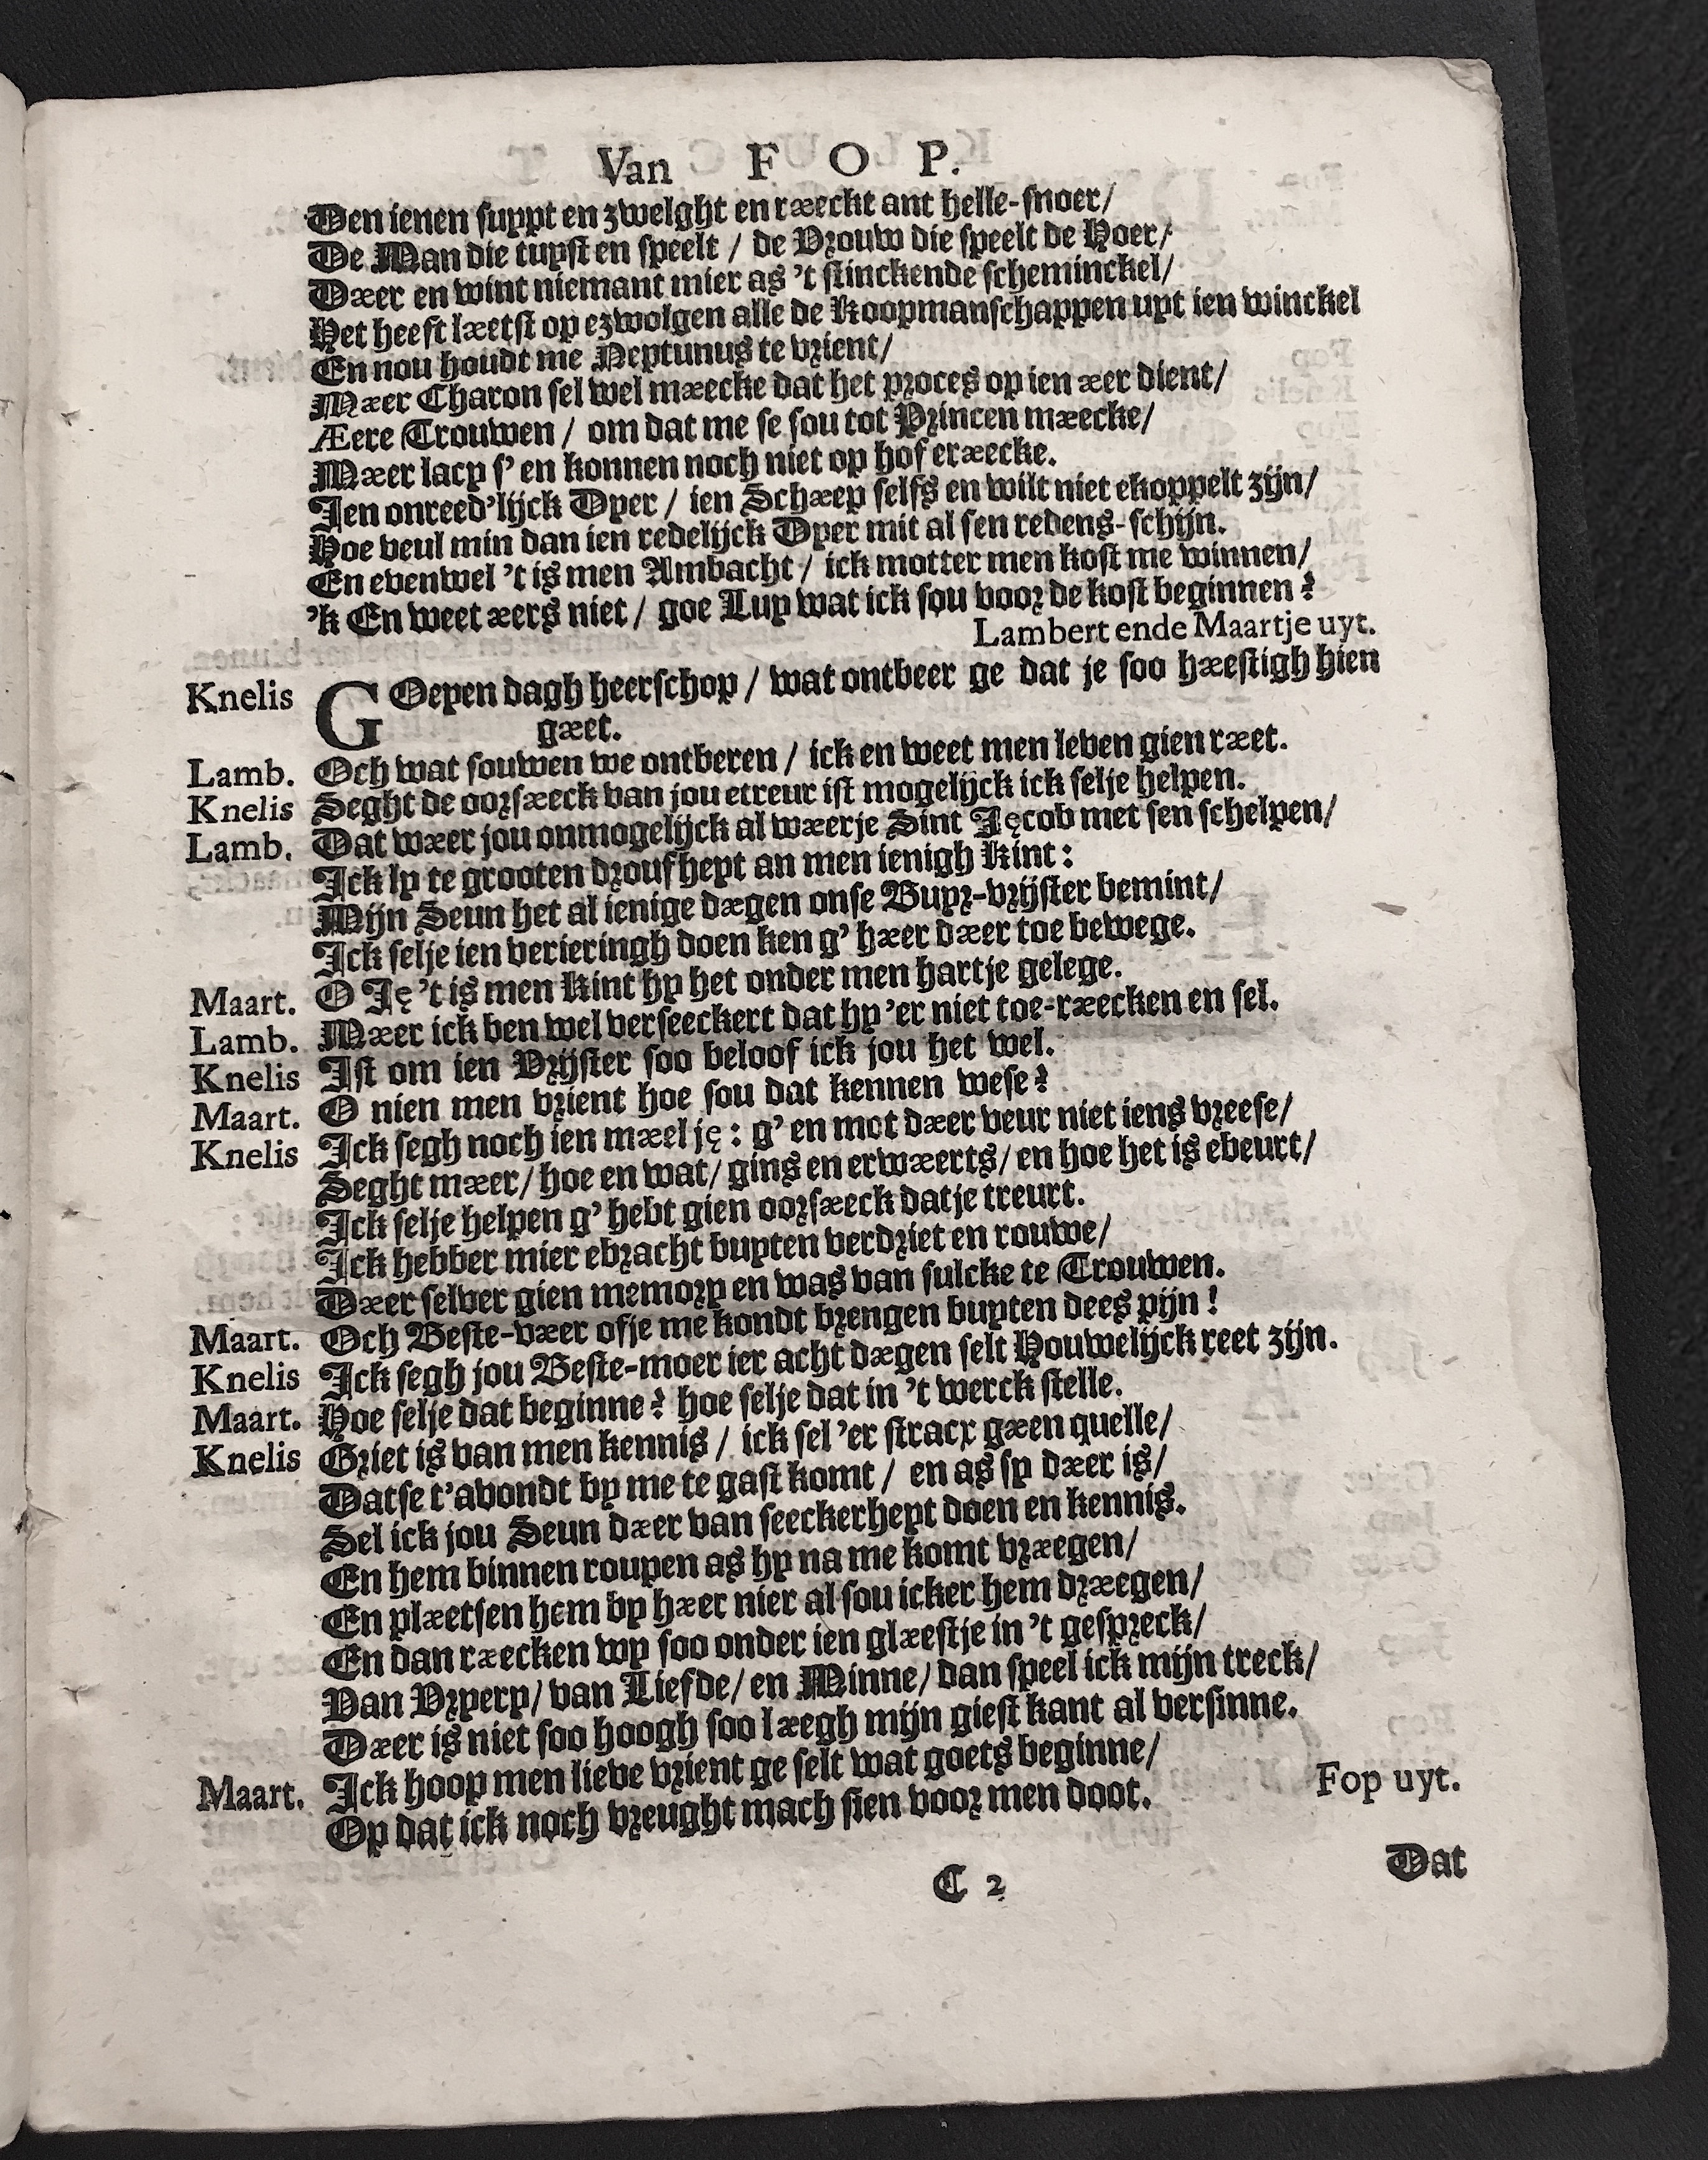 Van F O P.
Den ienen suypt en zwelght en ræeckt ant helle-snoer/
De Man die tuyst en speelt / de Vrouw die speelt de Hoer/
Dæer en wint niemant mier as 't stinckende scheminckel/
Het heeft læetst op ezwolgen alle de Koopmanschappen uyt ien winckel
En nou houdt me Neptunus te vrient/
Mæer Charon sel wel mæecke dat het proces op ien æer dient/
Æere Trouwen / om dat me se sou tot Princen mæecke/
Mæer lacy s' en konnen noch niet op hof eræecke.
Ien onreed'lijck Dyer / ien Schæep selfs en wilt niet ekoppelt zijn/
Hoe veul min dan ien redelijck Dyer mit al sen redens-schijn.
En evenwel 't is men Ambacht / ick motter men kost me winnen/
'k En weet æers niet / goe Luy wat ick sou voor de kost beginnen?
Lambert ende Maartje uyt.
Knelis GOeyen dagh heerschop / wat ontbeer ge dat je soo hæestigh hien
gæet.
Lamb. Och wat souwen we ontberen / ick en weet men leven gien ræet.
Knelis Seght de oorsæeck van jou etreur ist mogelijck ick selje helpen.
Lamb. Dat wæer jou onmogelijck al wæerje Sint Jęcob met sen schelpen/
Ick ly te grooten droufheyt an men ienigh Kint:
Mijn Seun het al ienige dægen onse Buyr-vrijster bemint/
Ick selje ien verieringh doen ken g' hæer dæer toe bewege.
Maart. O Ję 't is men Kint hy het onder men hartje gelege.
Lamb. Mæer ick ben wel verseeckert dat hy 'er niet toe-ræecken en sel.
Knelis Ist om ien Vrijster soo beloof ick jou het wel.
Maart. O nien men vrient hoe sou dat kennen wese?
Knelis Ick segh noch ien mæel ję: g' en mot dæer veur niet iens vreese/
Seght mæer/ hoe en wat/ gins en erwæerts/ en hoe het is ebeurt/
Ick selje helpen g' hebt gien oorsæeck datje treurt.
Ick hebber mier ebracht buyten verdriet en rouwe/
Dæer selver gien memory en was van sulcke te Trouwen.
Maart. Och Beste-væer ofje me kondt brengen buyten dees pijn!
Knelis Ick segh jou Beste-moer ier acht dægen selt Houwelijck reet zijn.
Maart. Hoe selje dat beginne? hoe selje dat in 't werck stelle.
Knelis Griet is van men kennis / ick sel 'er stracx gæen quelle/
Datse t'avondt by me te gast komt / en as sy dæer is/
Sel ick jou Seun dæer van seeckerheyt doen en kennis.
En hem binnen roupen as hy na me komt vræegen/
En plæetsen hem by hæer nier al sou icker hem dræegen/
En dan ræecken wy soo onder ien glæestje in 't gespreck/
Van Vryery/ van Liefde/ en Minne/ dan speel ick mijn treck/
Dæer is niet soo hoogh soo læegh mijn giest kant al versinne.
Maart. Ick hoop men lieve vrient ge selt wat goets beginne/
Op dat ick noch vreught mach sien voor men doot.
Fop uyt.
C 2
Dat